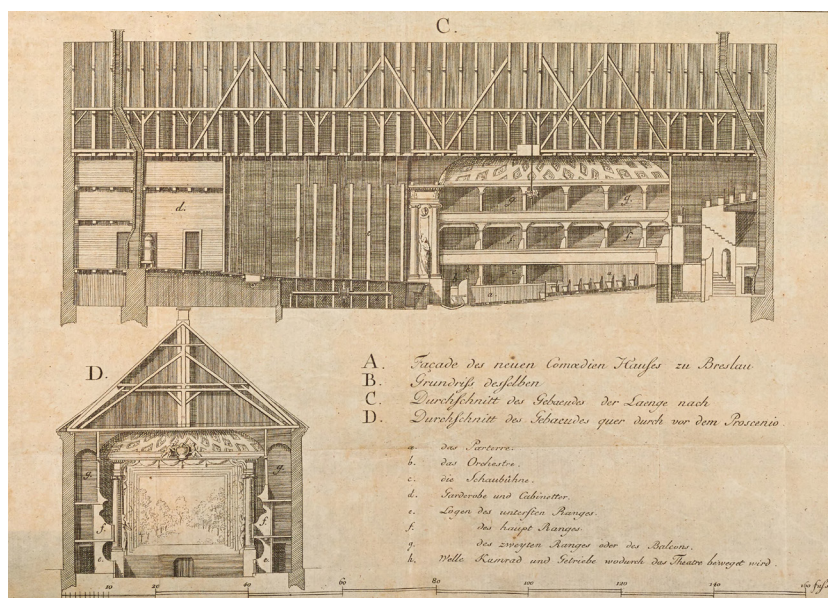 C.
d.
g.
g.
f.
f.
c
c
e
a
a
b
h
D.
g.
g.
f.
f.
e
e
A. Façade des neuen Comœdien Hauſes zu Breslau
B. Grundriſs desſelben
C. Durchſchnitt des Gebaeudes der Laenge nach
D. Durchſchnitt des Gebaeudes quer durch vor dem Proscenio.
a. das Parterre.
b. das Orchestre.
c. die Schaubühne.
d. Garderobe und Cabinetter.
e. Logen des unterſten Ranges.
f. des haupt Ranges.
g. des zweyten Ranges oder des Balcons.
h. Welle, Kamrad und Getriebe wodurch das Theatre beweget wird.
10 20 40 60 80 100 120 140 160 fuſs